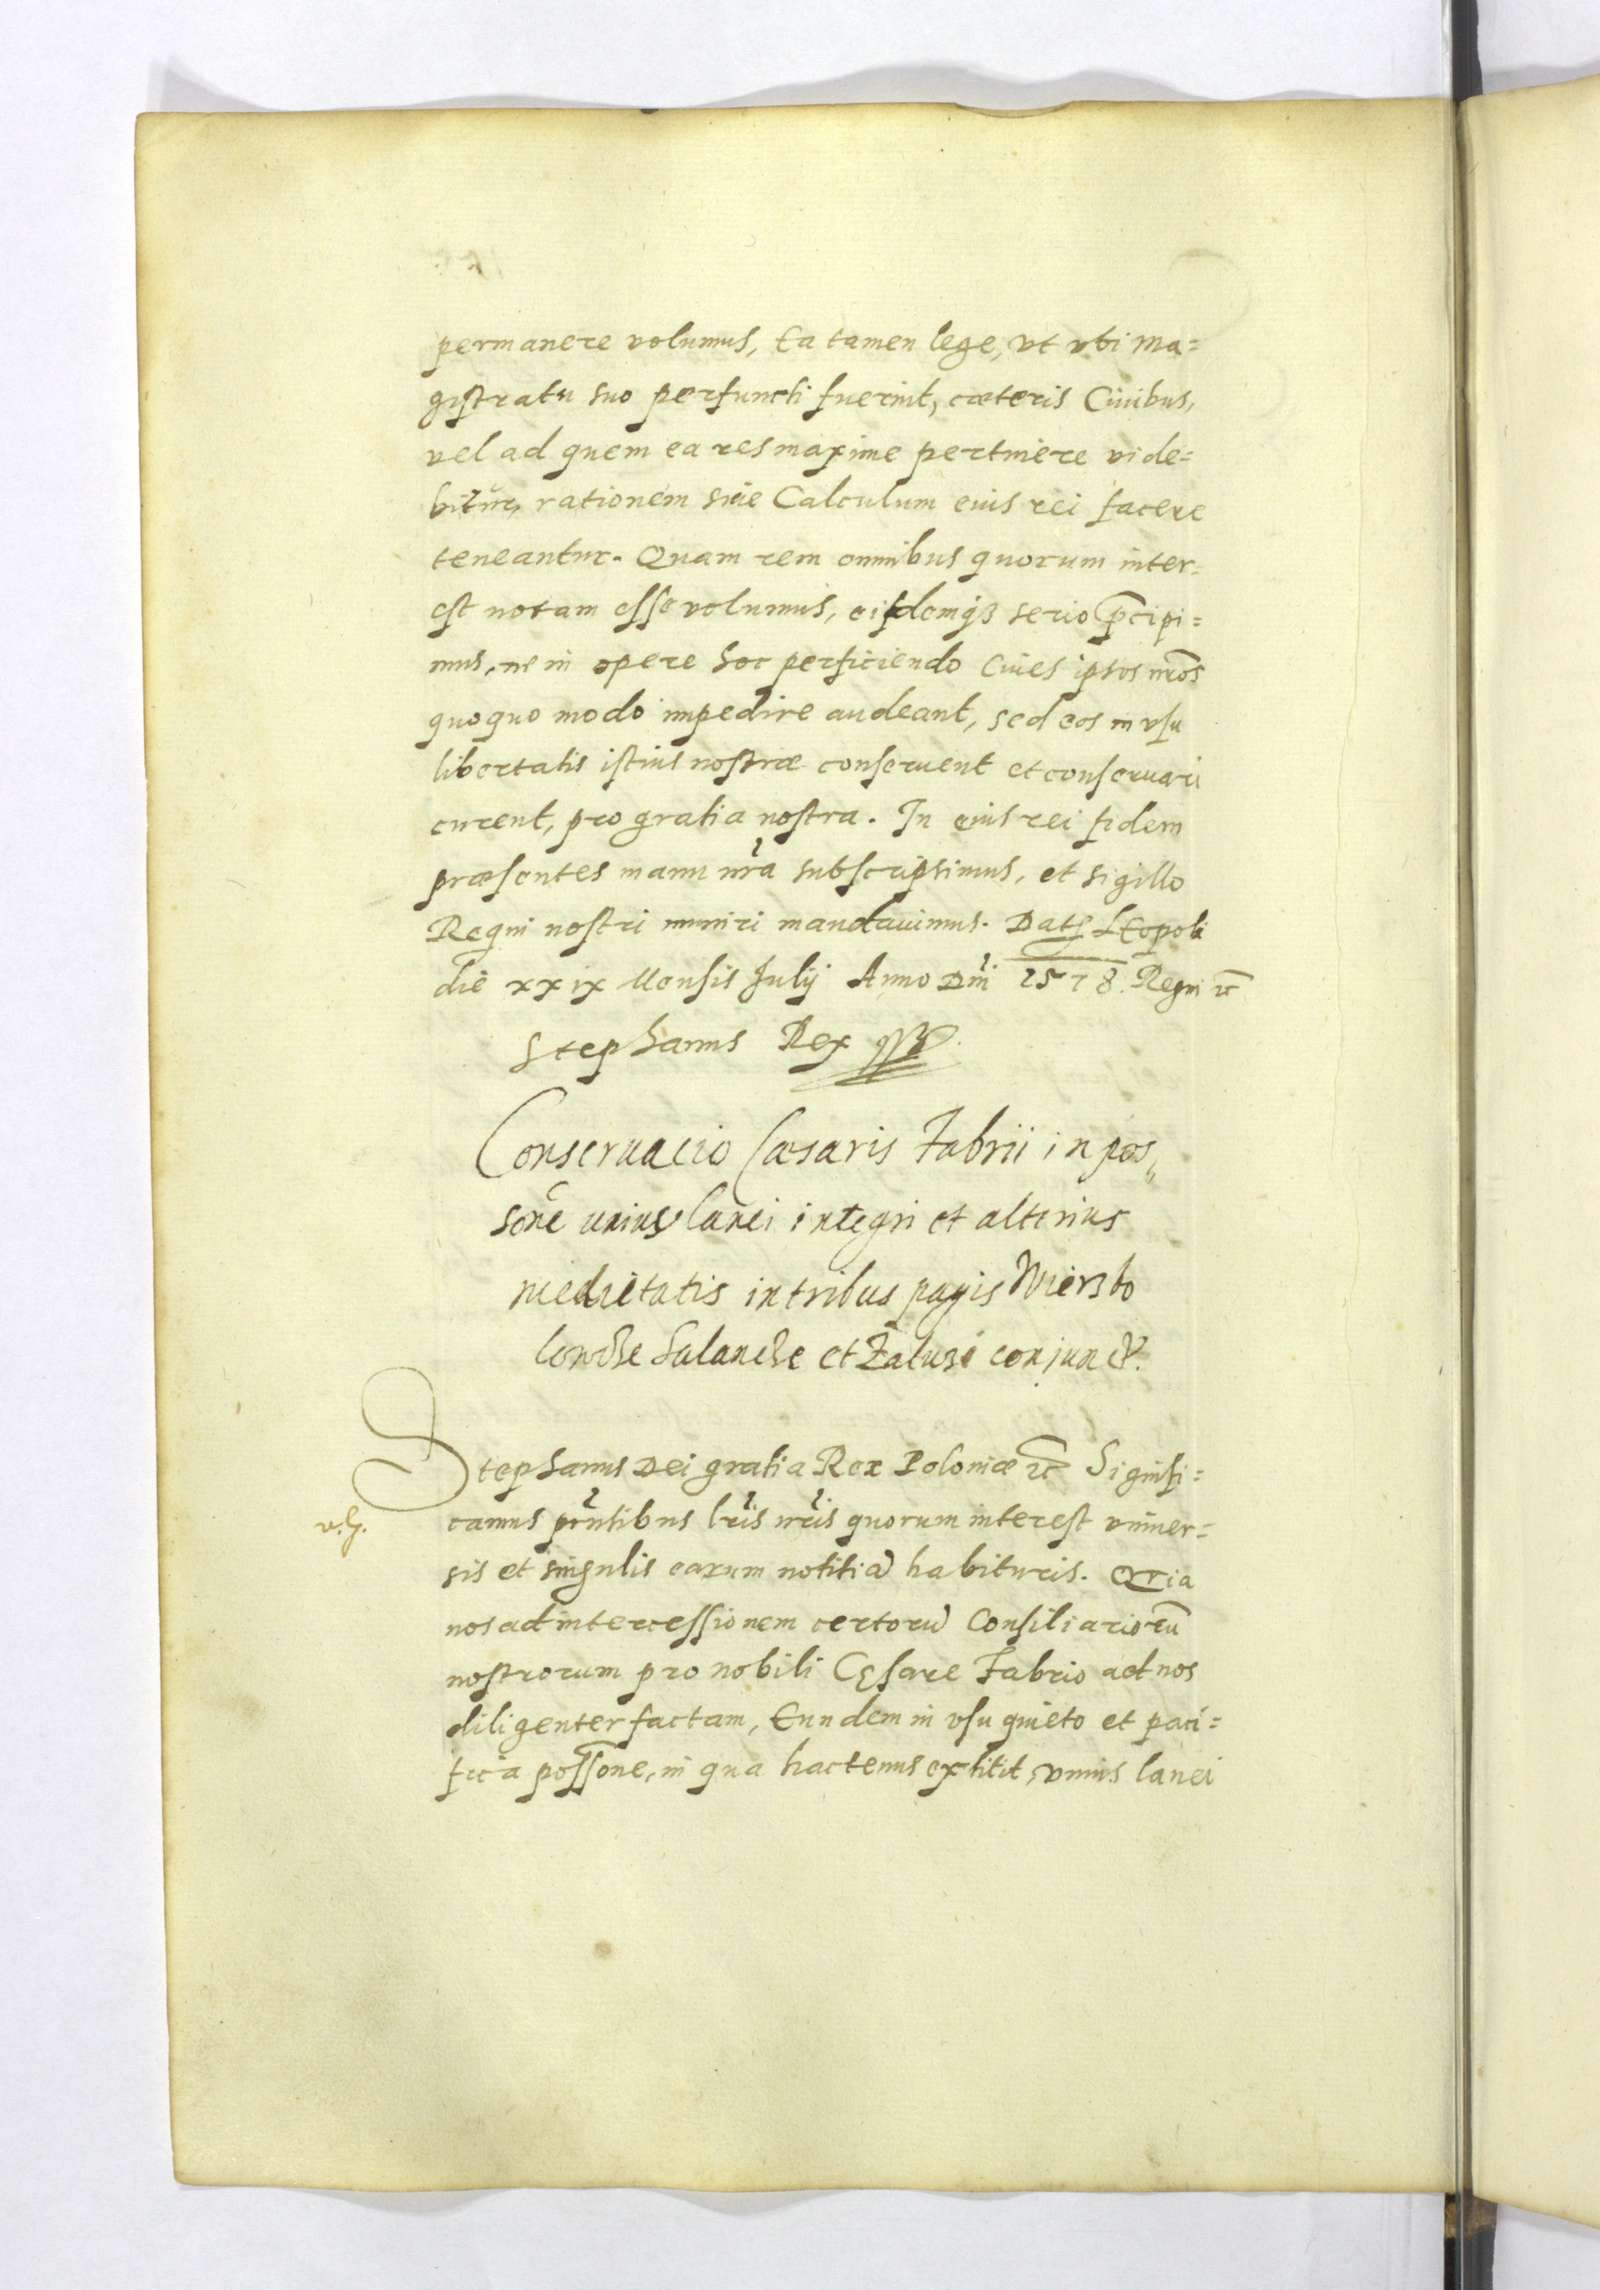 permanere volumus, Ea tamen lege, vt vbi ma=
gistratu suo perfuncti fuerint, cæteris Ciuibus,
vel ad quem ea res maxime pertinere vide=
bitur, rationem siue Calculum eius rei facere
teneantur. Quam rem omnibus quorum inter=
est notam esse volumus, eisdemqꝫ serio p̄cipi=
mus, ne in opere hoc perficiendo Ciues ipsos nr̃os
quoquo modo impedire audeant, sed eos in vsu
libertatis istius nostræ conseruent et conseruari
curent, pro gratia nostra. In eius rei fidem
præsentes manu nr̃a subscripsimus, et sigillo
Regni nostri muniri mandauimus. Datę LEopoli
die xxix Mensis Julij Anno Dni 1578. Regni ꝛc̃
Stephanus Rex
Conseruacio Cæsaris Fabrii in pos„
sone̅ unius lanei integri et alterius
medietatis in tribus pagis Wierzbo
lowcze Salancze et Zaluzi conjunct.
Stephanus Dei gratia Rex Poloniæ ꝛc̃ Signifi=
v. g.
camus pr̃ntibus lr̃is nr̃is quorum interest vniuer=
sis et singulis earum notitiã habituris. Quia
nos ad intercessionem certorũ Consiliariorũ
nostrorum pro nobili Cęsare Fabrio ad nos
diligenter factam, Eundem in vsu quieto et paci=
fica possone, in qua hactenus extitit, vnius lanei